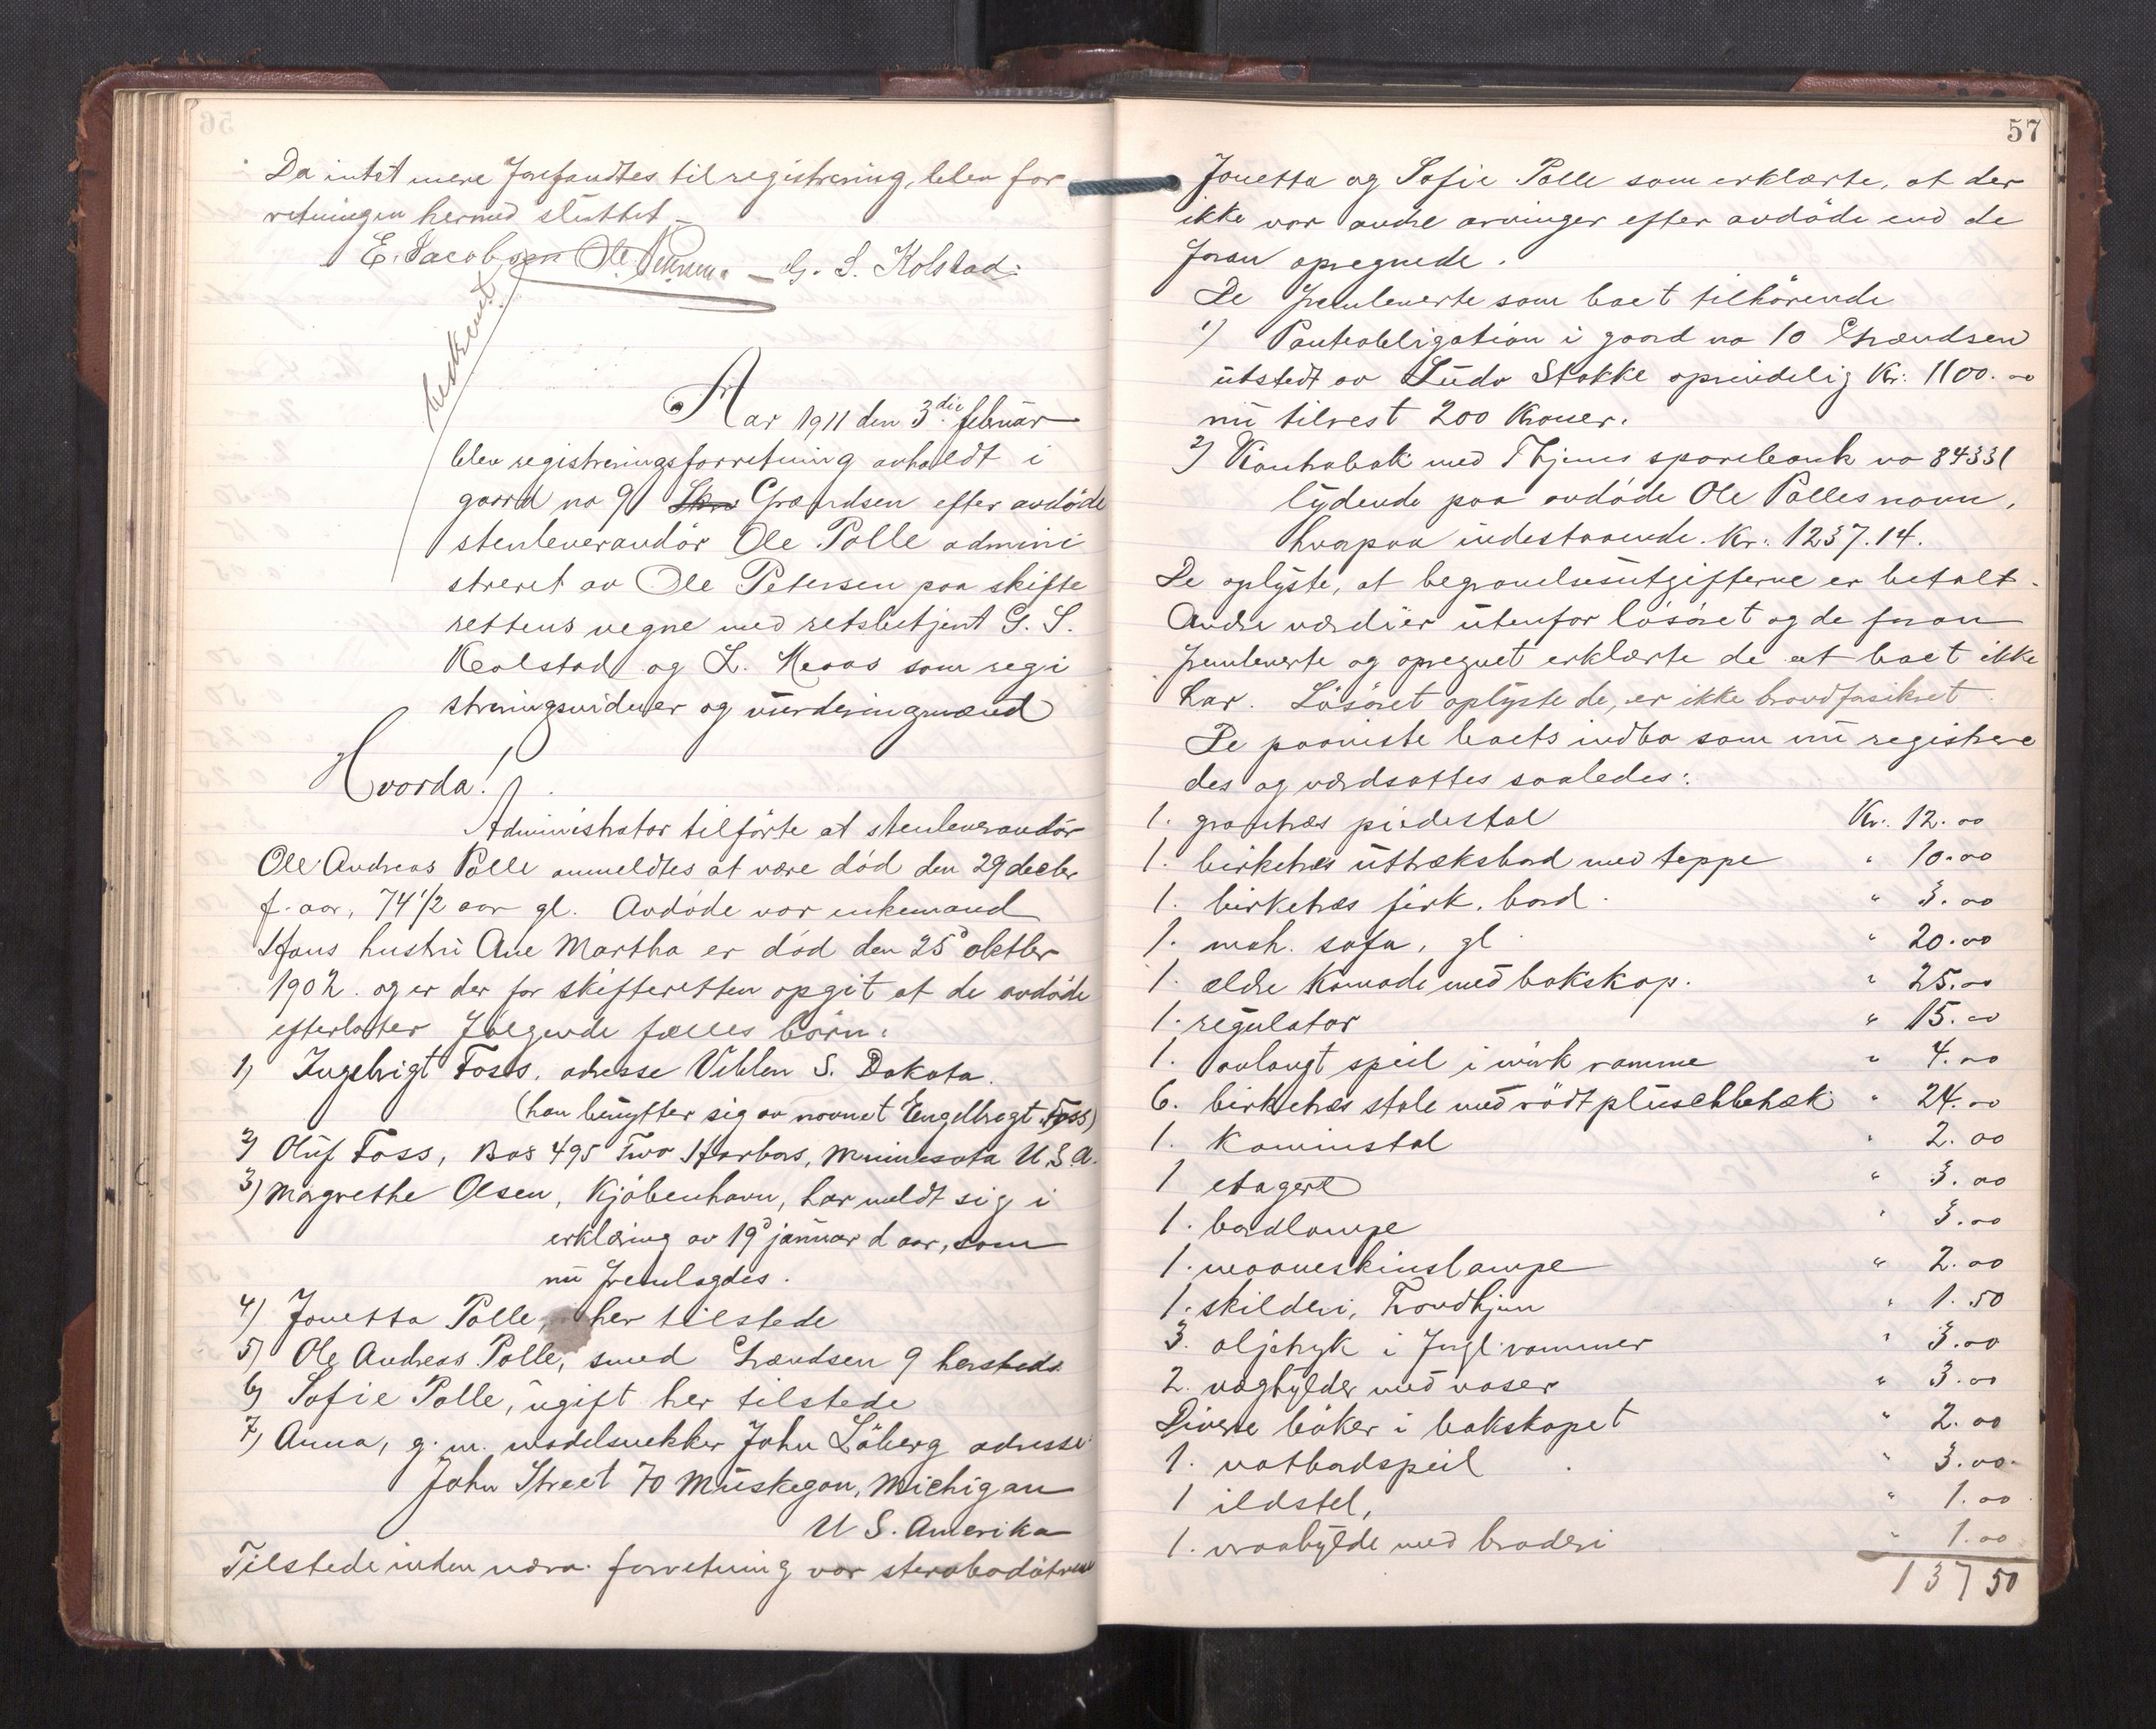 Da intet mere forefandtes til registrering, blev for
retningen hermed sluttet –
E. Jacobsen Ole Petersen – G. S. Kolstad.
beskrevet
Aar 1911 den 3die februar
blev registreringsforretning avholdt i
gaard no 9 Grændsen efter avdöde
stenleverandör Ole Palle admini
streret av Ole Petersen paa skifte
rettens vegne med retsbetjent G. S.
Kolstad og L. Moaas som regi
streringsvidner og vurderingsmænd
Hvorda!
Administrator tilförte at stenleverandör
Ole Andreas Palle anmeldtes at være död den 29 decbr
f. aar, 74 1/2 aar gl. Avdöde var enkemand
Hans hustru Ane Martha er död den 25 oktbr
1902. og er der for skifteretten opgit at de avdöde
efterlater følgende fælles börn:
1) Ingebrigt Foss, adresse Veblen S. Dakota.
(han benytter sig av navnet Engelbregt Foss)
2) Oluf Foss, Box 495 Two Harbors, Minnesota U.S.A.
3) Margrethe Olsen, Kjöbenhavn, har meldt sig i
erklæring av 19 januar d aar, som
nu fremlagdes.
4) Jonetta Palle, her tilstede
5) Ole Andreas Palle, smed Grændsen 9 hersteds
6) Sofie Palle, ugift her tilstede
7) Anna, g. m. modelsnekker John Löberg adresse
John Street 70 Muskegon, Michigan
U S. Amerika
Tilstede under nærv. forretning var stervbodötrene
57
Jonetta og Sofie Palle som erklærte, at der
ikke var andre arvinger efter avdöde end de
foran opregnede.
De fremleverte som boet tilhörende
1) Panteobligation i gaard no 10 Grændsen
utstedt av Ludv Stokke oprindelig Kr. 1100.00
nu tilrest 200 Kroner.
2) Kontrabok med Thjems sparebank no 84331
lydende paa avdöde Ole Palles navn,
hvorpaa indestaaende. Kr. 1237.14.
De oplyste, at begravelsesutgifterne er betalt.
Andre værdier utenfor lösöret og de foran
fremleverte og opregnet erklærte de at boet ikke
har. Lösöret oplyste de, er ikke brandforsikret
De paaviste boets indbo som nu registrere
des og værdsattes saaledes:
1. grantræs piedestal Kr. 12.00
1. birketræs uttræksbord med teppe " 10.00
1. birketræs firk. bord. " 3.00
1. mah. sofa, gl " 20.00
1. ældre komode med bokskap. " 25.00
1. regulator " 15.00
1. avlangt speil i mörk ramme " 4.00
6. birketræs stole med rödt plüschbetræk " 24.00
1. kaminstol " 2.00
1 etagere " 3.00
1. bordlampe " 3.00
1. maaneskinslampe " 2.00
1. skilderi, Trondhjem " 1.50
3. oljetryk i forgl. rammer " 3.00
2. væghylder med vaser " 3.00
Diverse böker i bokskapet " 2.00
1. notbordspeil " 3.00
1 ildstel, " 1.00
1. vraahylde med broderi " 1.00
137 50